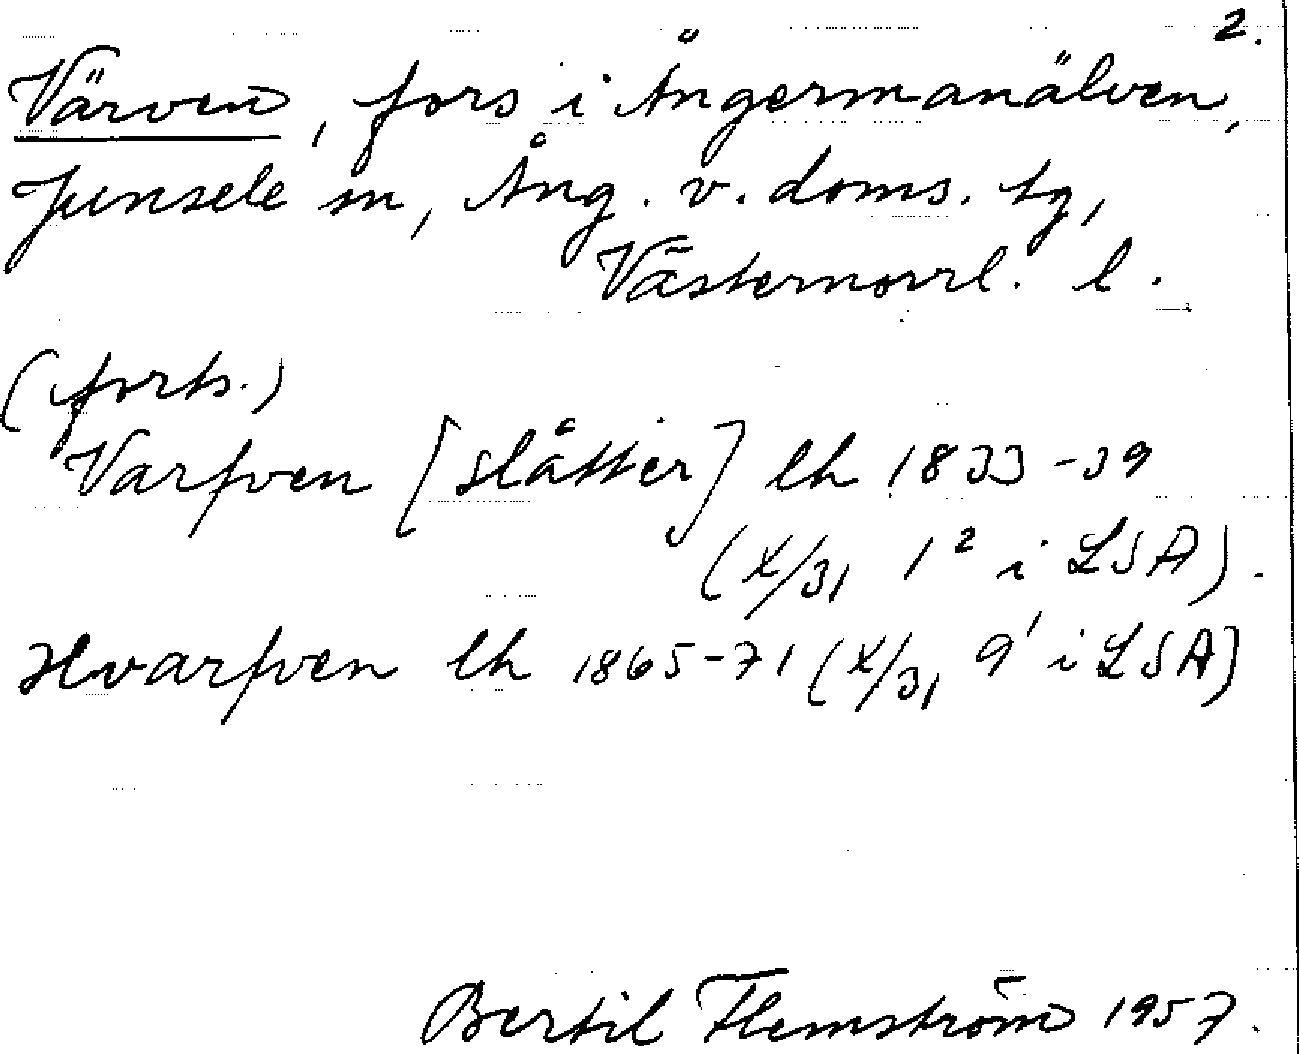 2.
Värven, fors i Ångermanälven,
Junsele sn, Ång. v. doms. tg,
Västernorrl. l.
(forts.)
Varfven [slåtter] lh 1833-39
(X/31 1² i LSA).
Hvarfven lh 1865-71 (X/31 9' i LSA)
Bertil Flemström 1957.